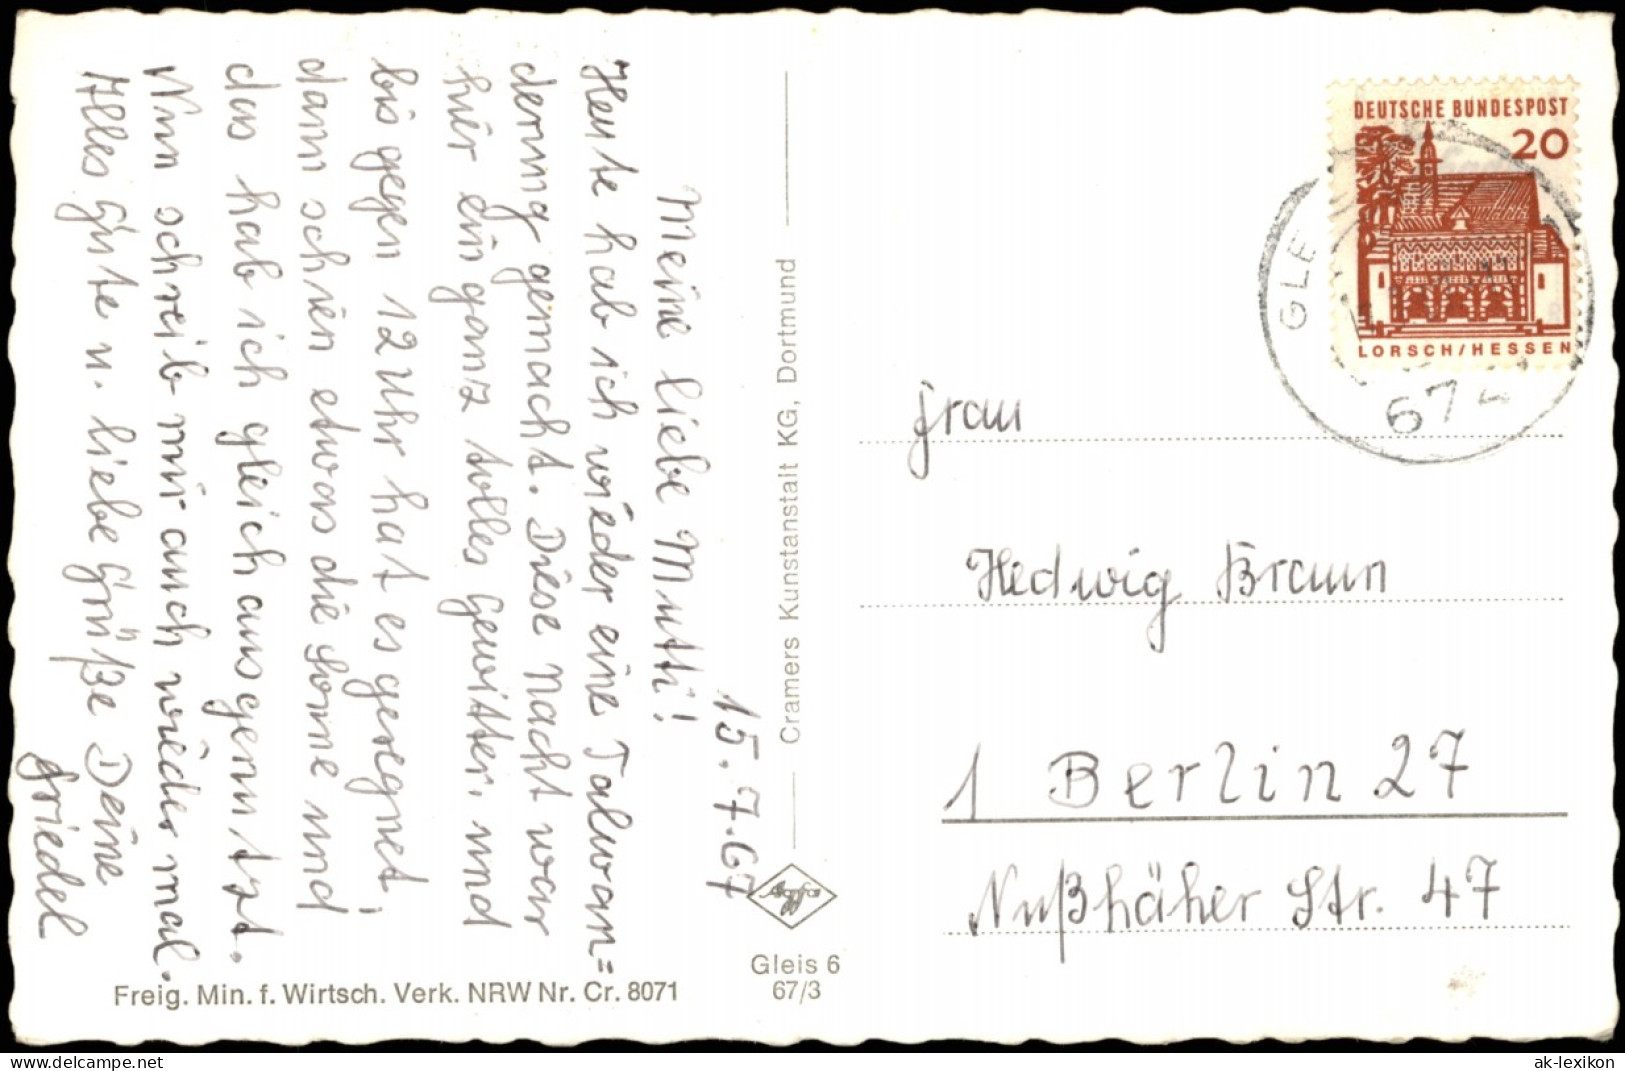 15.7.67
Meine liebe Mutti!
Heute hab ich wieder eine Talwan=
derung gemacht. Diese Nacht war
hier ein ganz tolles Gewitter, und
bis gegen 12 Uhr hat es geregnet,
dann schien etwas die Sonne und
das hab ich gleich ausgenutzt.
Nun schreib mir auch wieder mal.
Alles Gute u. liebe Grüße Deine
Friedel
Freig. Min. f. Wirtsch. Verk. NRW Nr. Cr. 8071
Cramers Kunstanstalt KG, Dortmund
Agfa
Gleis 6
67/3
DEUTSCHE BUNDESPOST
20
LORSCH/HESSEN
GLE
674
Frau
Hedwig Braun
1 Berlin 27
Nußhäher Str. 47
www.delcampe.net
ak-lexikon